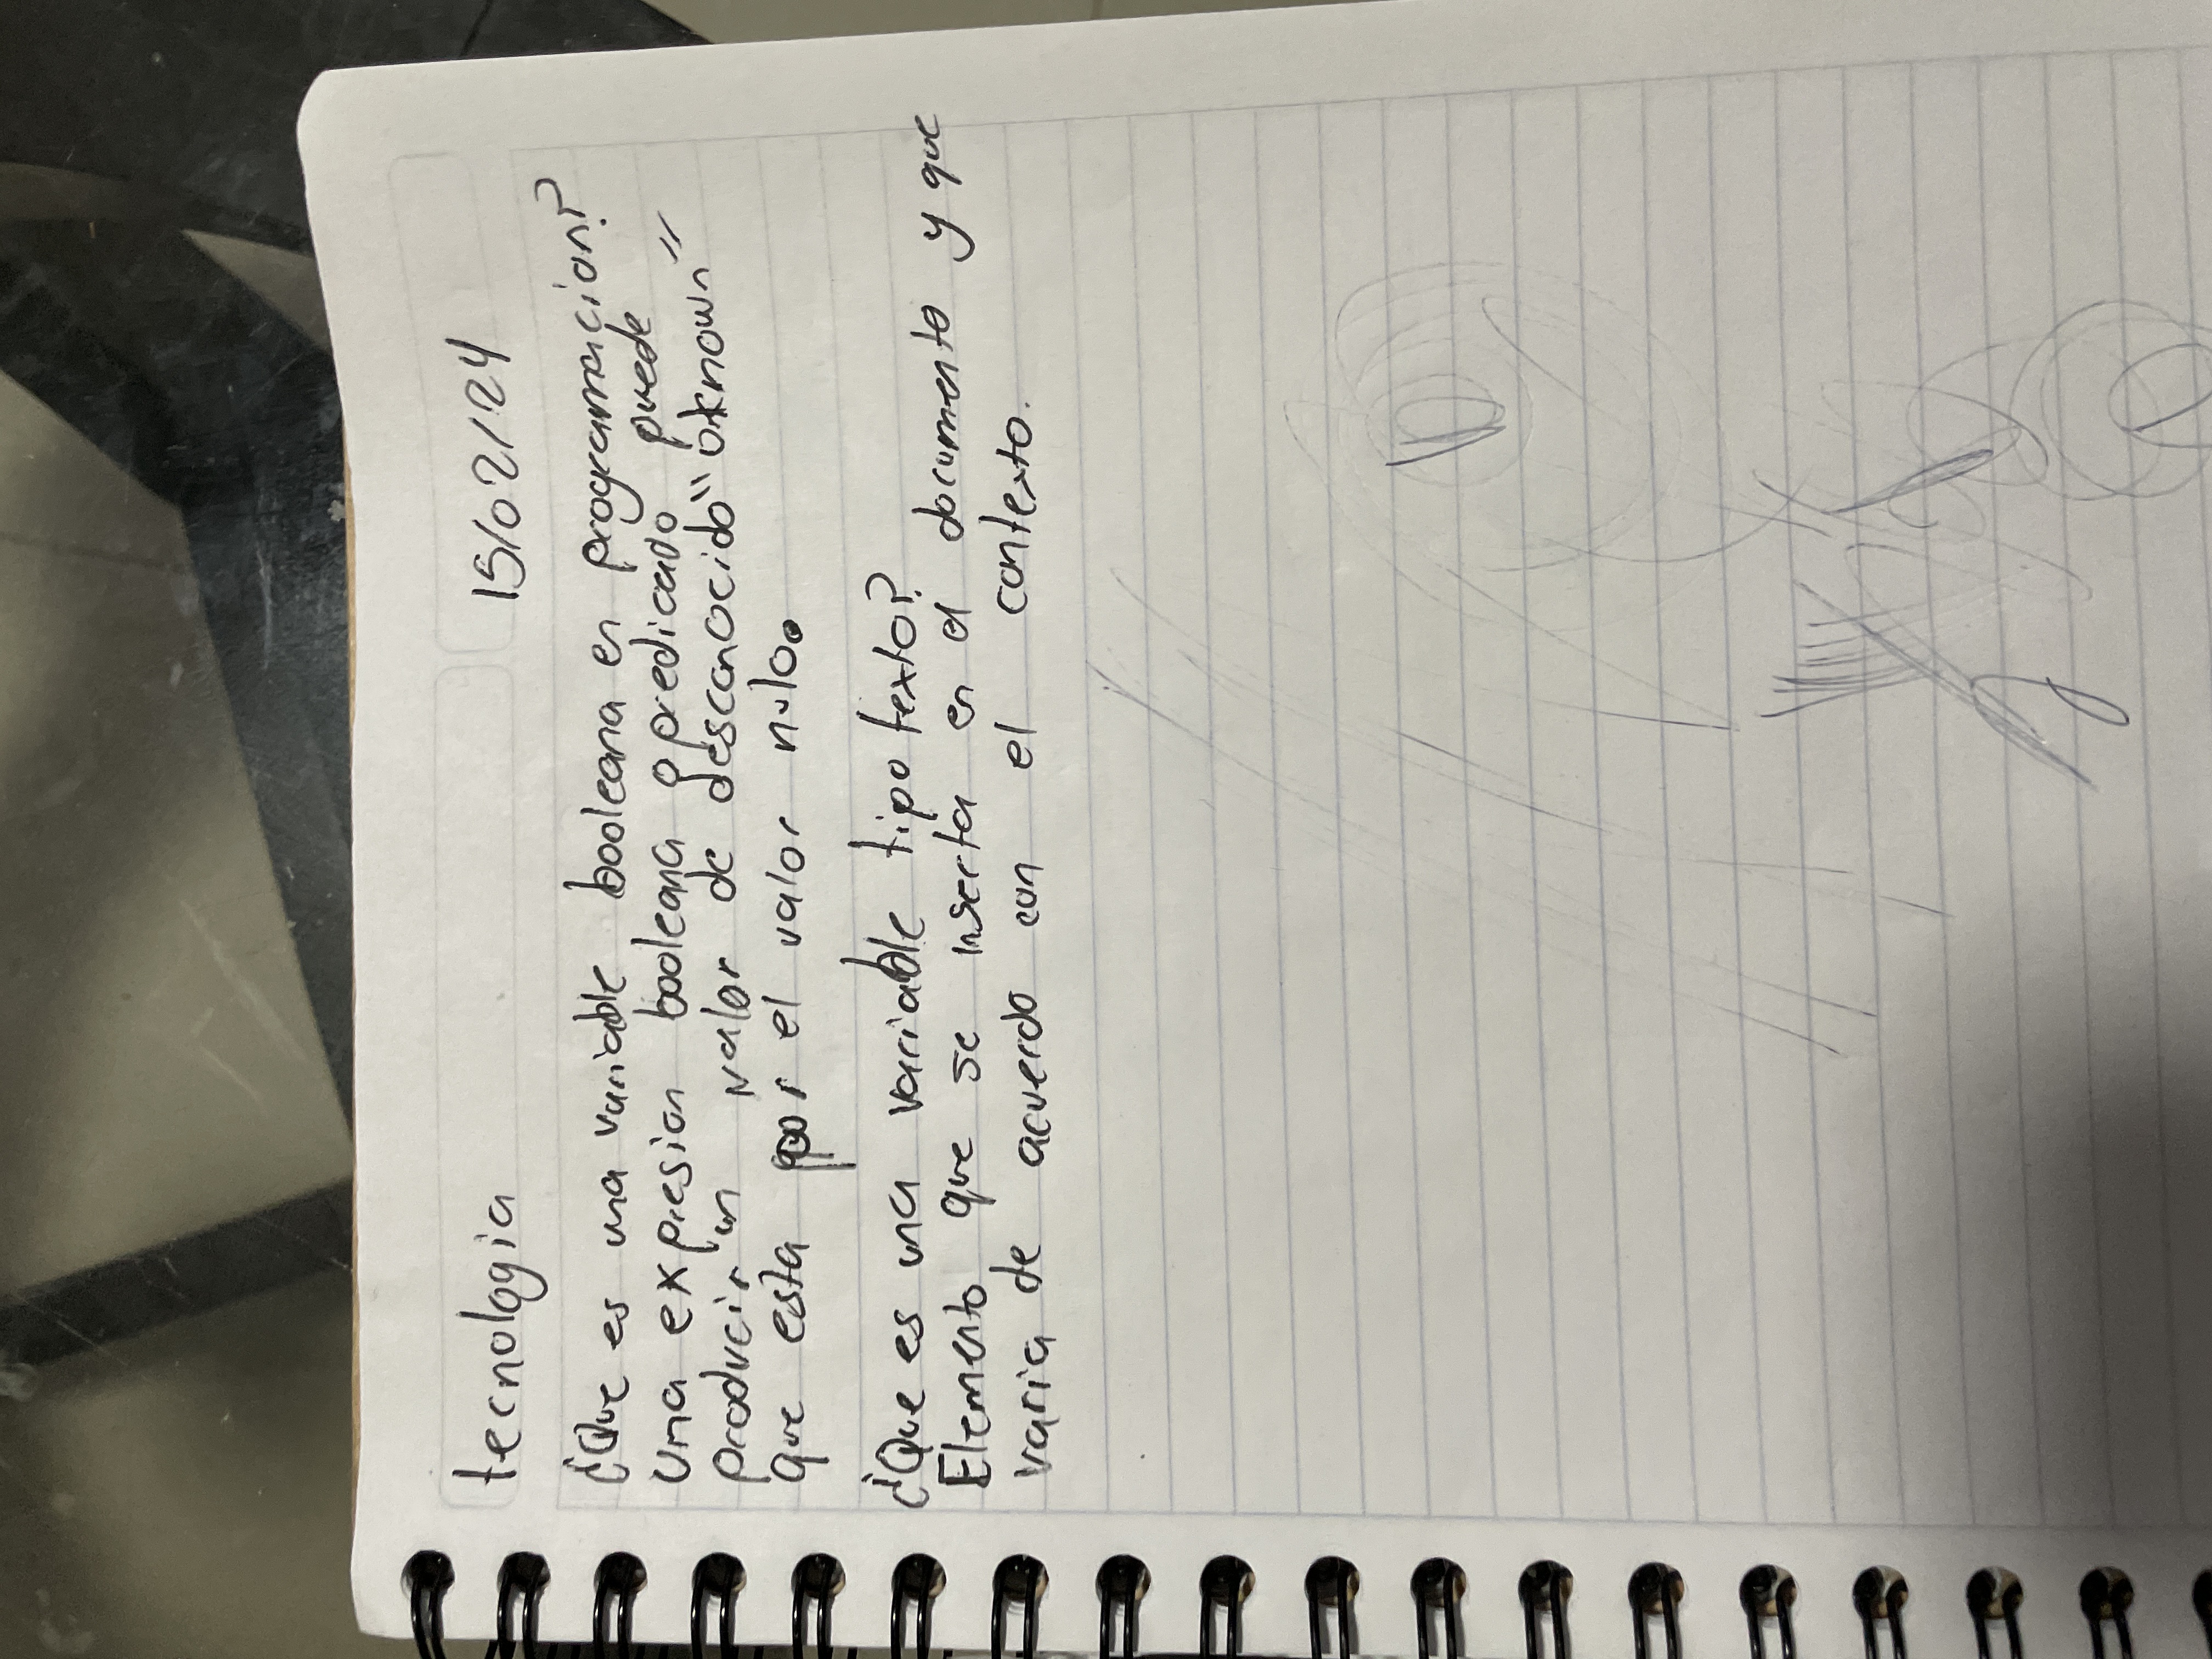 tecnologia 15/02/24
¿Que es una variable booleana en programacion?
Una expresion booleana o predicado puede
producir un valor de desconocido "oknown"
que esta por el valor nulo.
¿Que es una variable tipo texto?
Elemento que se inserta en el documento y que
varia de acuerdo con el contexto.